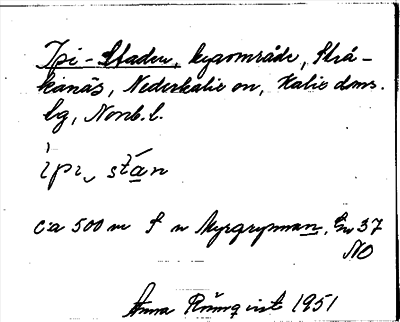 Ipi-Staden, byområde, Strå-
kanäs, Nederkalix sn, Kalix doms.
lg, Norrb. l.
ìpi, stán
ca 500 m S n Myrgrynnan, Ew 37
NO
Anna Rönnqvist 1951